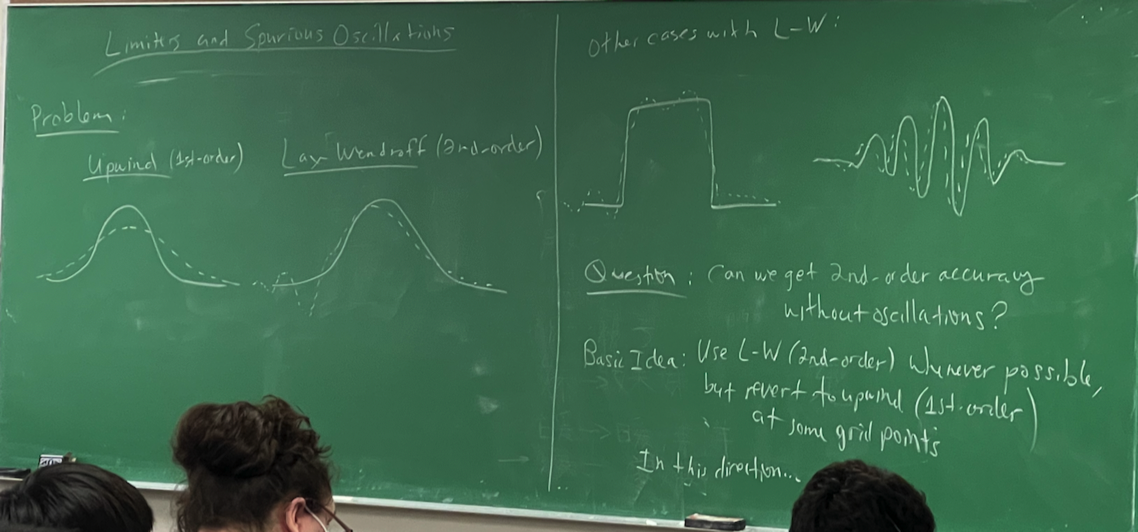 Limiters and Spurious Oscillations
Problem:
Upwind (1st-order)
Lax Wendroff (2nd-order)
Other cases with L-W:
Question: Can we get 2nd-order accuracy
without oscillations?
Basic Idea: Use L-W (2nd-order) whenever possible,
but revert to upwind (1st-order)
at some grid points
In this direction...